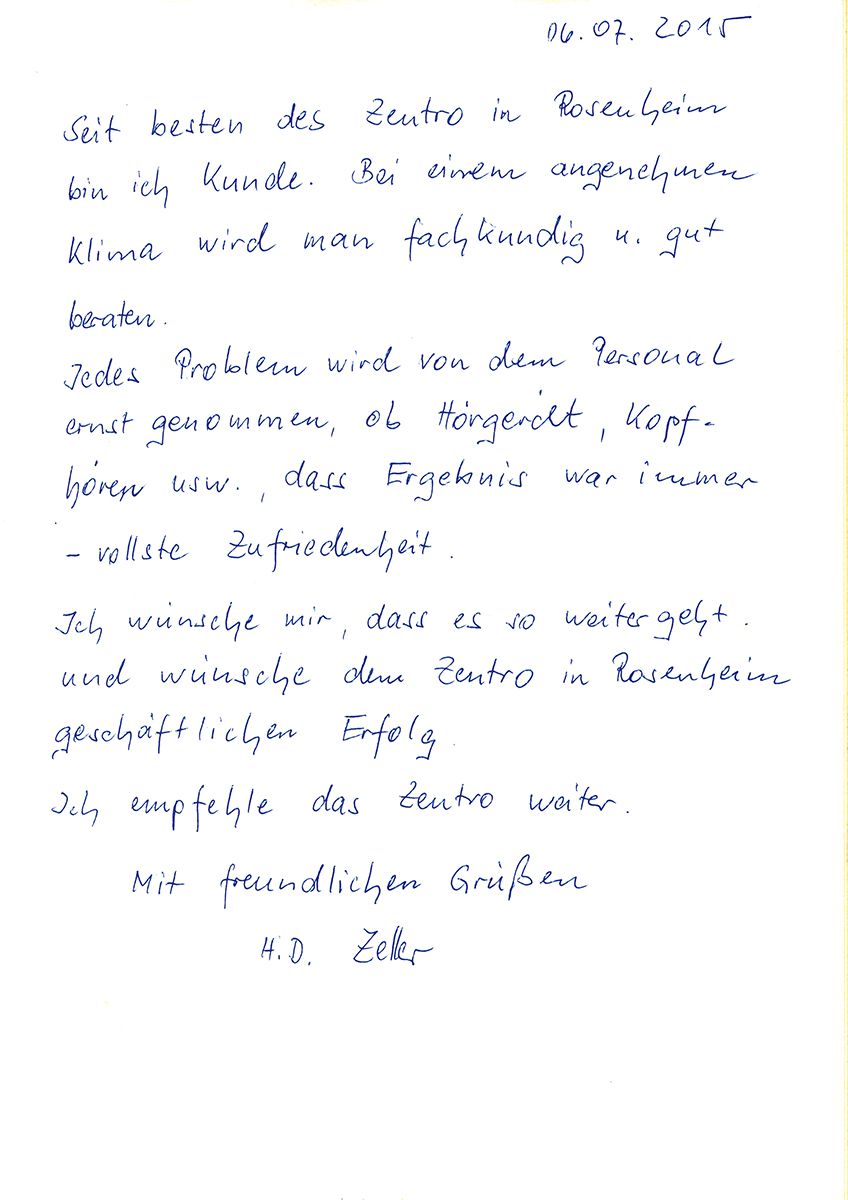 06.07. 2015
Seit besten des Zentro in Rosenheim
bin ich Kunde. Bei einem angenehmen
Klima wird man fachkundig u. gut
beraten.
Jedes Problem wird von dem Personal
ernst genommen, ob Hörgerät, Kopf-
hören usw., dass Ergebnis war immer
- vollste Zufriedenheit.
Ich wünsche mir, dass es so weitergeht.
und wünsche dem Zentro in Rosenheim
geschäftlichen Erfolg.
Ich empfehle das Zentro weiter.
Mit freundlichen Grüßen
H.D. Zeller